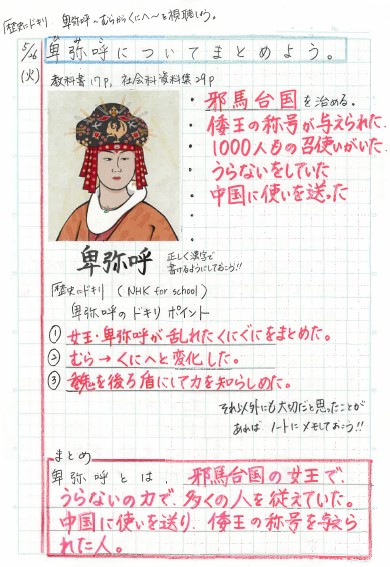 歴史にドキリ 卑弥呼～むらからくにへ～を視聴しよう。
5/26
(火)
卑弥呼についてまとめよう。
教科書17p, 社会科資料集29p
・邪馬台国を治める。
・倭王の称号が与えられた。
・1000人もの召使いがいた。
・うらないをしていた
・中国に使いを送った
・
・
卑弥呼
正しく漢字で
書けるようにしておこう!!
歴史にドキリ (NHK for school)
卑弥呼のドキリポイント
① 女王・卑弥呼が乱れたくにぐにをまとめた。
② むら→くにへと変化した。
③ 魏を後ろ盾にして力を知らしめた。
それ以外にも大切だと思ったことが
あれば ノートにメモしておこう!!
まとめ
卑弥呼とは、邪馬台国の女王で、
うらないの力で、多くの人を従えていた。
中国に使いを送り、倭王の称号を与えら
れた人。